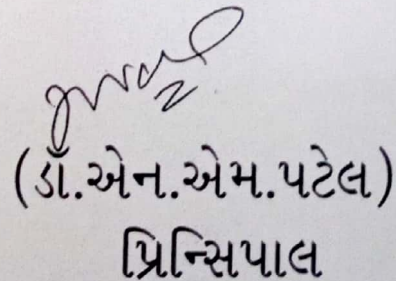 (ડૉ.એન.એમ.પટેલ)
પ્રિન્સિપાલ